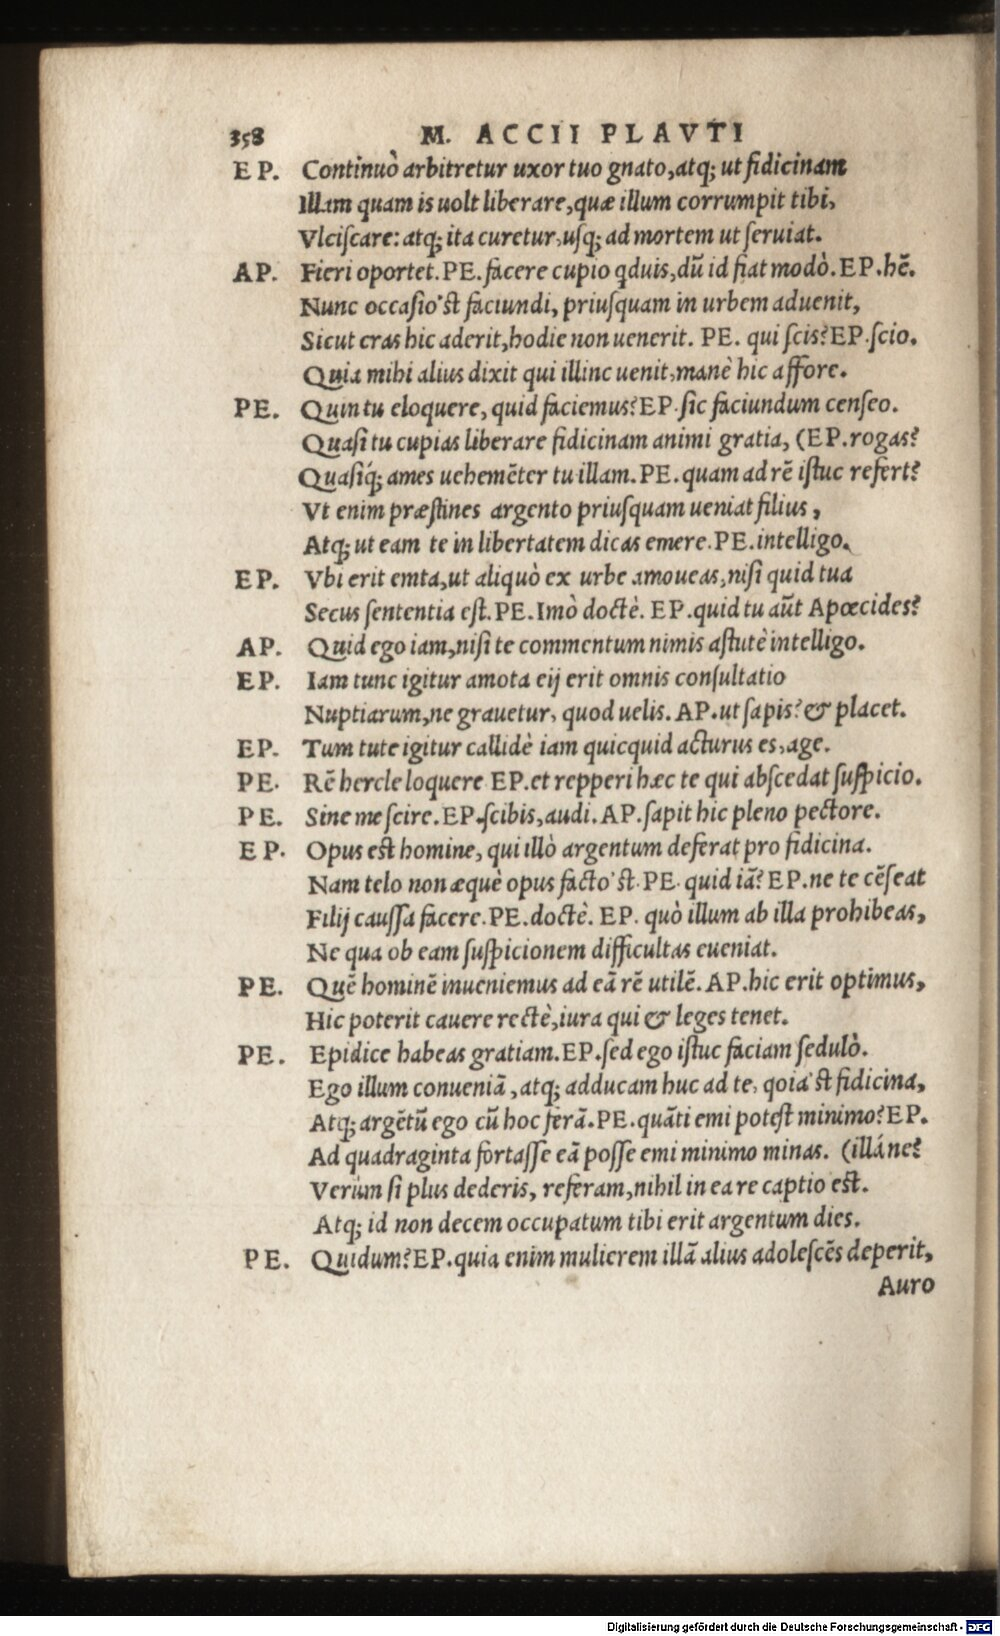 358 M. ACCII PLAVTI
EP. Continuò arbitretur uxor tuo gnato, atq; ut fidicinam
Illam quam is uolt liberare, quæ illum corrumpit tibi,
Vlciſcare: atq; ita curetur, uſq; ad mortem ut ſeruiat.
AP. Fieri oportet. PE. facere cupio qduis, dū id fiat modò. EP. hē.
Nunc occaſio'ſt faciundi, priuſquam in urbem aduenit,
Sicut cras hic aderit, hodie non uenerit. PE. qui ſcis? EP. ſcio.
Quia mihi alius dixit qui illinc uenit, manè hic affore.
PE. Quin tu eloquere, quid faciemus? EP. ſic faciundum cenſeo.
Quaſi tu cupias liberare fidicinam animi gratia, (EP. rogas?
Quaſiq́; ames uehemēter tu illam. PE. quam ad rē iſtuc refert?
Vt enim præſtines argento priuſquam ueniat filius,
Atq; ut eam te in libertatem dicas emere. PE. intelligo.
EP. Vbi erit emta, ut aliquò ex urbe amoueas, niſi quid tua
Secus ſententia eſt. PE. Imò doctè. EP. quid tu aūt Apœcides?
AP. Quid ego iam, niſi te commentum nimis aſtutè intelligo.
EP. Iam tunc igitur amota eij erit omnis conſultatio
Nuptiarum, ne grauetur, quod uelis. AP. ut ſapis? & placet.
EP. Tum tute igitur callidè iam quicquid acturus es, age.
PE. Rē hercle loquere EP. et repperi hæc te qui abſcedat ſuſpicio.
PE. Sine me ſcire. EP. ſcibis, audi. AP. ſapit hic pleno pectore.
EP. Opus eſt homine, qui illò argentum deferat pro fidicina.
Nam telo non æquè opus facto'ſt. PE. quid iā? EP. ne te cēſeat
Filij cauſſa facere. PE. doctè. EP. quò illum ab illa prohibeas,
Ne qua ob eam ſuſpicionem difficultas eueniat.
PE. Quē hominē inueniemus ad eā rē utilē. AP. hic erit optimus,
Hic poterit cauere rectè, iura qui & leges tenet.
PE. Epidice habeas gratiam. EP. ſed ego iſtuc faciam ſedulò.
Ego illum conueniā, atq; adducam huc ad te, qoia'ſt fidicina,
Atq; argētū ego cū hoc ferā. PE. quāti emi poteſt minimo? EP.
Ad quadraginta fortaſſe eā poſſe emi minimo minas. (illáne?
Verùm ſi plus dederis, referam, nihil in ea re captio eſt.
Atq; id non decem occupatum tibi erit argentum dies.
PE. Quidum? EP. quia enim mulierem illā alius adoleſcēs deperit,
Auro
Digitalisierung gefördert durch die Deutsche Forschungsgemeinschaft - DFG